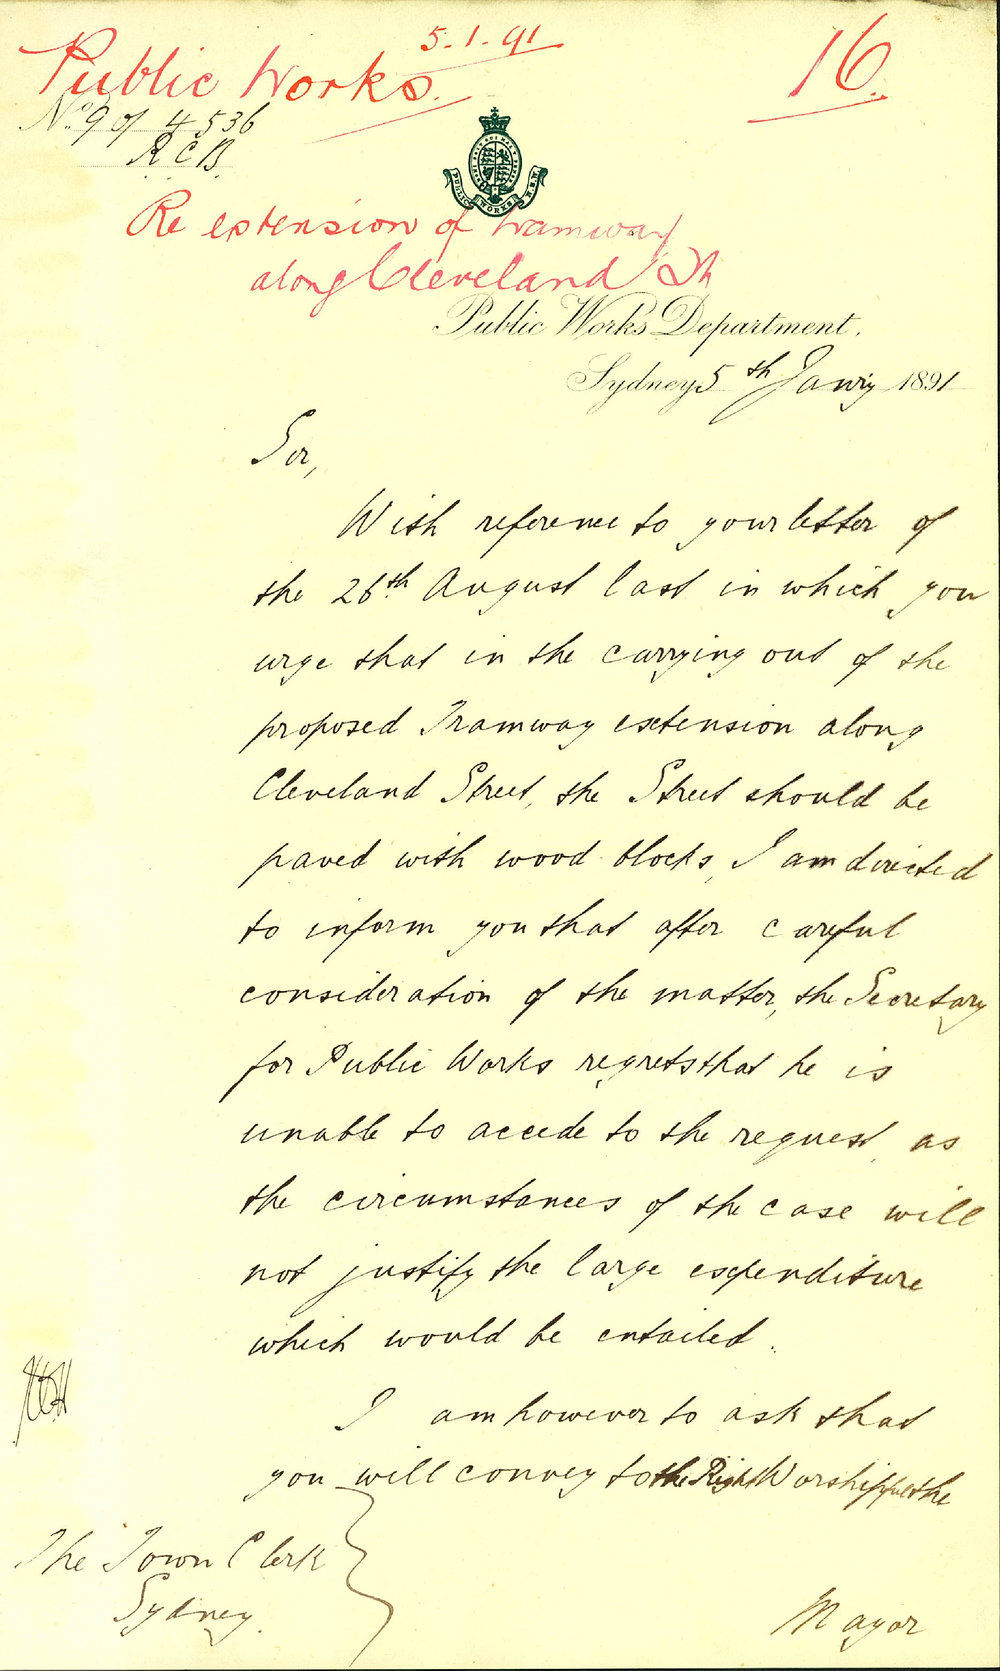 5.1.91
Public Works.
16.
No. 9 of 4536
R.C.B.
PUBLIC WORKS N.S.W.
Re extension of tramway
along Cleveland St
Public Works Department.
Sydney 5th Janry 1891
Sir,
With reference to your letter of
the 26th August last in which you
urge that in the carrying out of the
proposed Tramway extension along
Cleveland Street, the Street should be
paved with wood blocks, I am directed
to inform you that after careful
consideration of the matter, the Secretary
for Public Works regrets that he is
unable to accede to the request, as
the circumstances of the case will
not justify the large expenditure
which would be entailed.
I am however to ask that
you will convey to the Right Worshipful the
The Town Clerk
Sydney.
Mayor